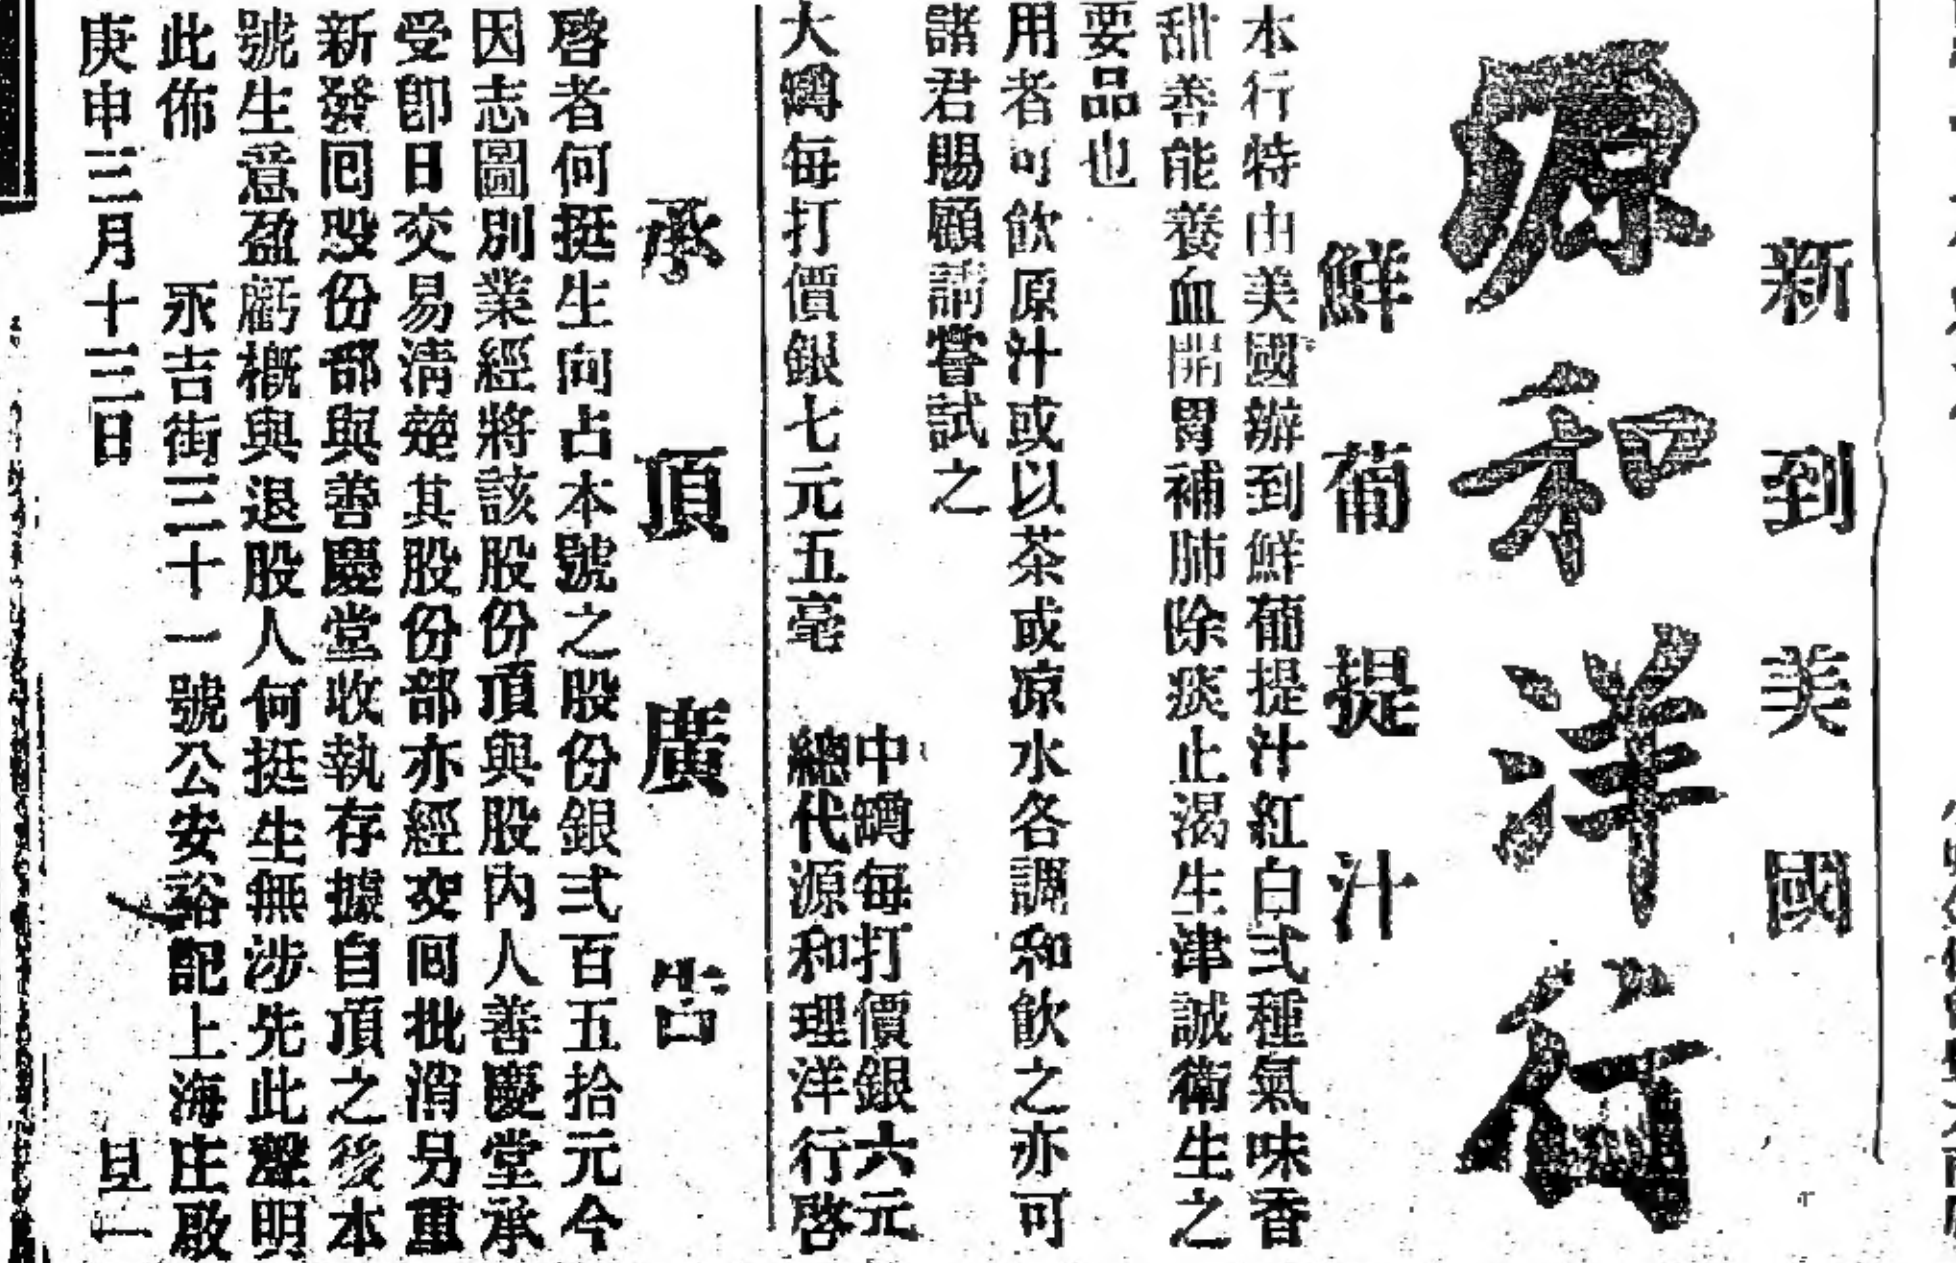 新到美國
源和洋行
鮮葡提汁
本行特由美國辦到鮮葡提汁紅白弍種氣味香
甜善能養血開胃補肺除痰止渴生津誠衛生之
要品也
用者可飲原汁或以茶或凉水各調和飲之亦可
諸君賜顧請嘗試之
大罇每打價銀七元五毫
中罇每打價銀六元
總代源和理洋行啓
承頂廣告
啓者何挺生向占本號之股份銀弍百五拾元今
因志圖別業經將該股份頂與股內人善慶堂承
受卽日交易清楚其股份部亦經交囘批消另重
新發囘股份部與善慶堂收執存據自頂之後本
號生意盈虧概與退股人何挺生無涉先此聲明
此佈 永吉街三十一號公安裕記上海庄啟
庚申三月十三日